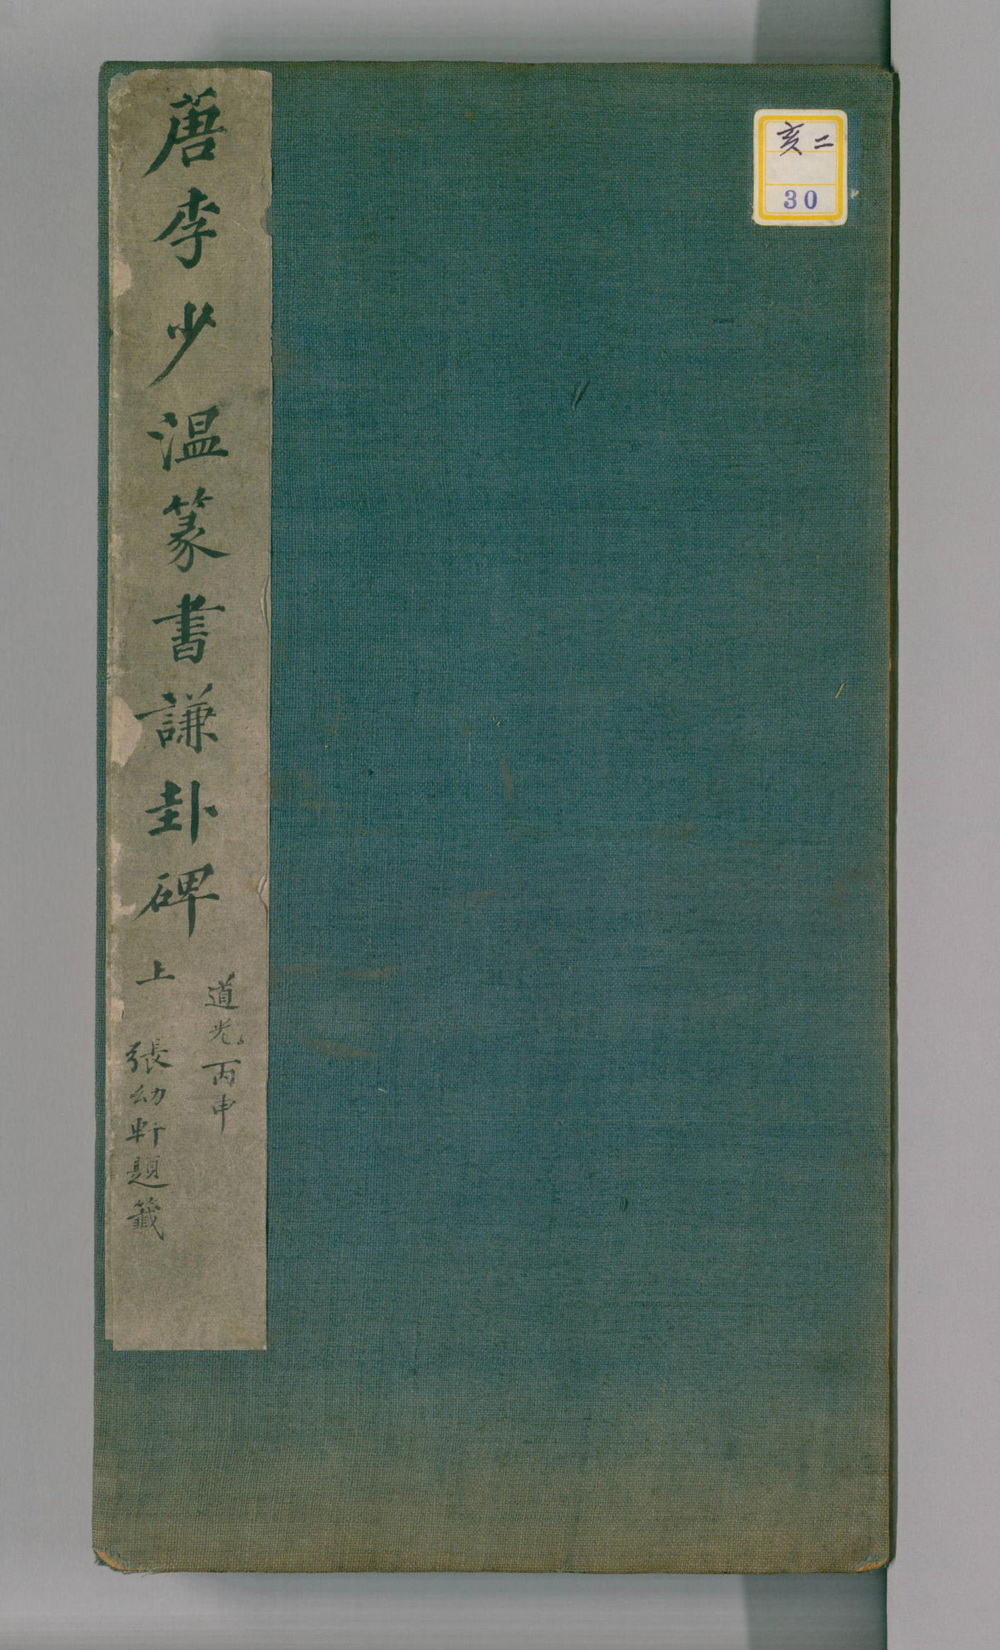 唐李少温篆書謙卦碑 上
道光丙申
張幼軒題籤
亥二
30